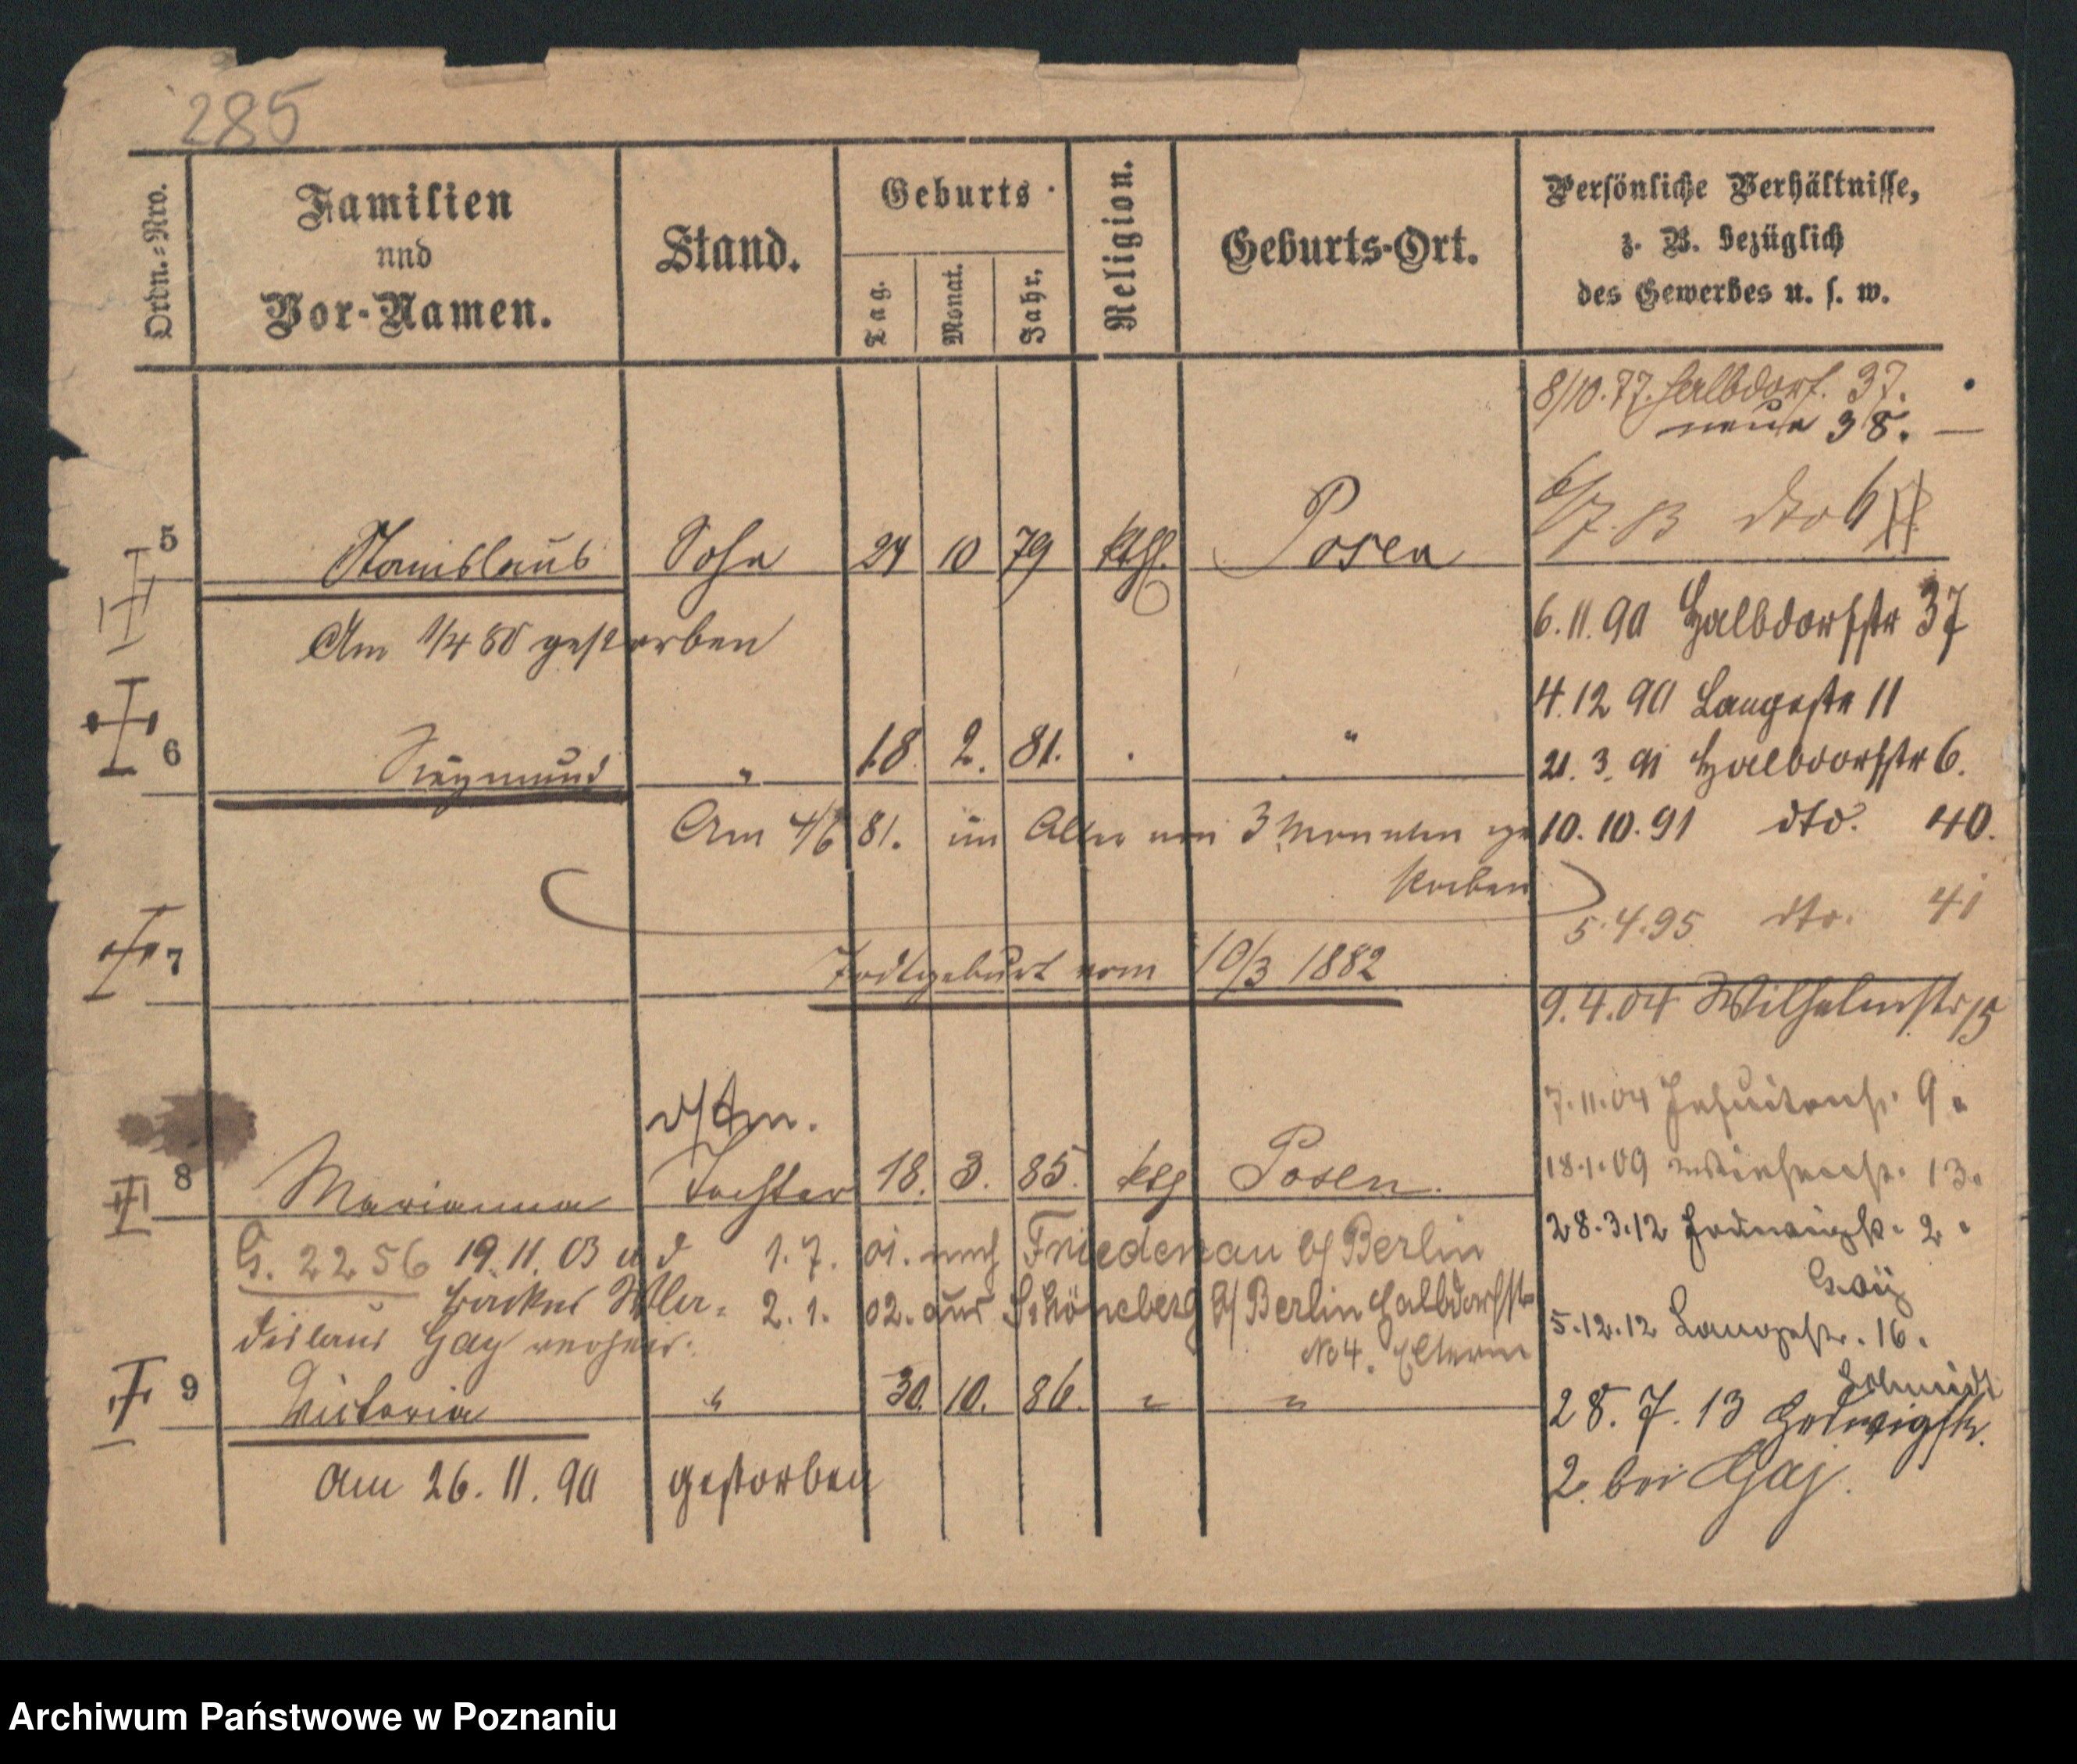 285
Ordn.=Nro.
Familien
und
Vor-Namen.
Stand.
Geburts
Tag.
Monat.
Jahr.
Religion.
Geburts-Ort.
Persönliche Verhältnisse,
z. B. bezüglich
des Gewerbes u. s. w.
8/10.77. Halbdorf. 37.
neue 38. —
6/7. 83 dto 6
5 Stanislaus Sohn 24 10 79 kthl. Posen
6.11.90 Halbdorfstr 37
Am 1/4 80 gestorben
4.12 90 Langestr 11
6 Siegmund " 18. 2. 81. . "
21. 3. 91 Halbdorfstr 6.
Am 4/6 81. im Alter von 3 Monaten ge
storben
10. 10. 91 dto. 40.
5.4.95 dto. 41
7 Todtgeburt vom 10/3 1882
9.4.04 Wilhelmstr 15
7.11.04 Jesuitenstr. 9.
18.1.09 13.
8 Marianna Tochter 18. 3. 85. ktg Posen.
28.3.12 Hedwigstr. 2.
G. 2256 19.11.03 a d 1. 7. 01. nach Friedenau b/ Berlin
Bäcker Wla= 2. 1. 02. aus Schöneberg b/ Berlin Halbdorfstr
dislaus Gay verheir. No 4. Eltern
Gaij
5.12.12 Langestr. 16.
Schmidt
9 Victoria " 30. 10. 86. " "
28. 7. 13 Hedwigstr.
2. bei Gaj.
Am 26. 11. 90 gestorben
Archiwum Państwowe w Poznaniu